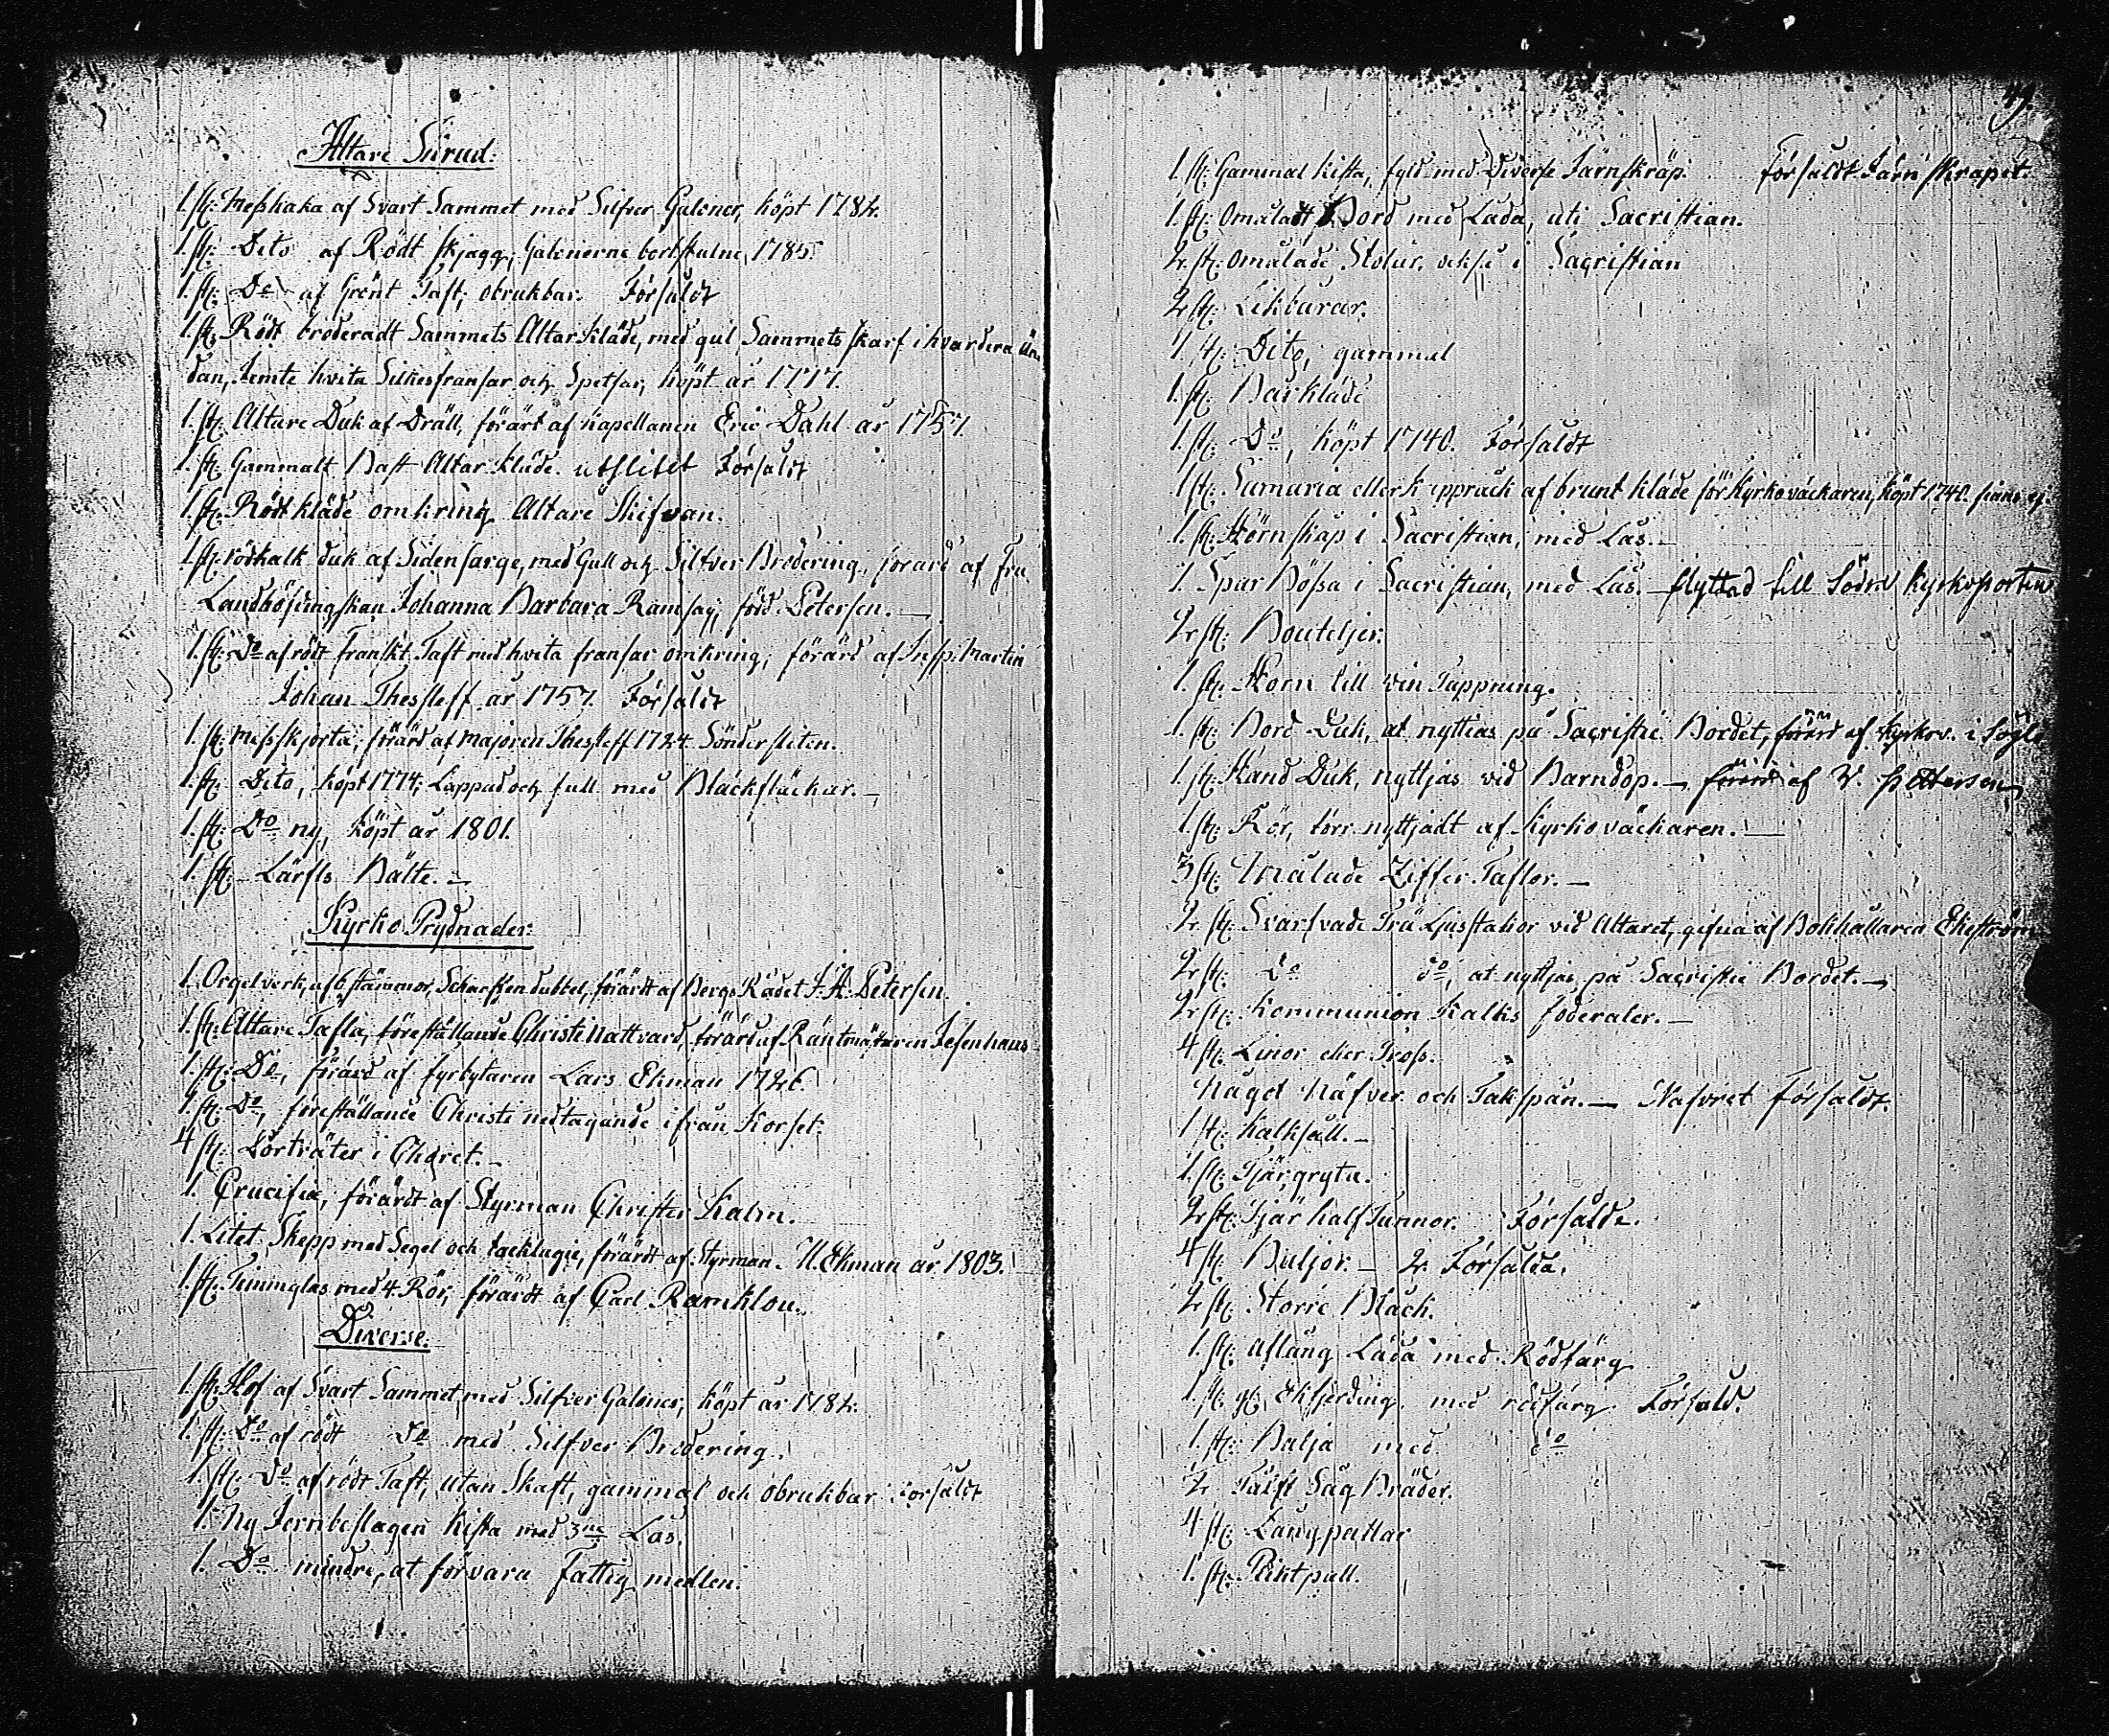 Altare Skrud:
1. st: Messhaka af Svart Sammet med Silfver Galoner, köpt 1784.
1. st: Dito af Rödt skjagg, Galonerne bortstulne, 1785.
1. st: Do af Grönt Taft, obrukbar. Försåldt
1. st: Rödt broderadt Sammets Altar Kläde, med gul Sammets skarf i hvardera än
dan, Jemte hvita Silkesfransar och Spetsar, köpt år 1777.
1. st: Altare Duk af Dräll, förärt af Kapellanen Eric Dahl år 1757.
1. st: Gammalt Bast Altar Kläde. utslitet Försåldt
1. st: Rödt kläde omkring Altare Skifvan.
1. st: röd kalk duk af Siden sarge, med Gull och Silfver Brodering, förärd af Fru
Landshöfdingskan Johanna Barbara Ramsay, född Petersen.
1. st: Do af rödt Franskt Taft med hvita fransar omkring, förärd af Insp: Martin
Johan Thesleff år 1757. Försåldt
1. st: Messkjorta, förärd af Majoren Thesleff 1724. Söndersliten.
1. st: Dito, köpt 1774; Lappad och full med Bläckfläckar.
1. st: Do ny, köpt år 1801.
1. st: Lärfts Bälte.
Kyrko Prydnader:
1. Orgelverk, af 6 stämmor, Scharffen dubbel, förärdt af Bergs Rådet J. A. Petersen.
1. st: Altare Tafla, föreställande Christi Nattvard, förärd af Räntmästaren Jesenhaus
1. st: Do, förärd af fyrbytaren Lars Ekman 1726.
1. st: Do, föreställande Christi nedtagande ifrån Korset.
4 st: Porträter i Choret.
1. Crucifix, förärdt af Styrman Christer Kalm.
1. Litet Skepp med Segel och tacklagie, förärdt af Styrman N. Ekman år 1803.
1. st: Timmglas med 4. Rör, förärdt af Carl Ramklou.
Diverse.
1. st: Hof af Svart Sammet, med Silfver Galoner, köpt år 1784.
1. st: Do af rödt Do med Silfver Brodering.
1. st: Do af rödt Taft, utan Skaft, gammal och obrukbar Försåldt
1. Ny Jernbeslagen Kista med 3ne Lås.
1. Do mindre, at förvara Fattig medlen.
49.
1. st: Gammal Kista, fyld med Diverse Järnskräp. Försåldt Järn skrapet.
1. st: Omåladt Bord med Låda, uti Sacristian.
2. st: Omålade Stolar, också i Sacristian
2 st: Likbårar.
1 st: Dito, gammal
1. st: Bårkläde
1. st: Do, köpt 1740. Försåldt
1 st: eller Kapprack af brunt kläde för Kyrkoväckaren, köpt 1740.
1. st: Hörnskåp i Sacristian, med Lås.
1. Spar Bössa i Sacristian, med Lås. – flyttad till Södra Kyrkoporten
2 st: Bouteljer.
1. st: Horn till Vin Tappning.
1. st: Bord Duk, at nyttias på Sacristie Bordet, förärd af Kyrkov. i
1. st: Hand Duk, nyttjas vid Barndop. – förärd af V. Pettersen
1. st: Rör, förr nyttjadt af Kyrko väckaren.
3 st: Målade Ziffer Taflor.
2 st: Svarfvade Trä Ljusstakor vid Altaret, gifna af Bokhållaren Ekeström
2 st: Do do, at nyttjas på Sacristie Bordet.
2 st: Kommunion Kalks foderaler.
4 st: Linor eller Tross.
Något Näfver och Takspån. – Näfvret försåldt.
1 st: Kalksåll.
1. st: Tjärgryta.
2 st: Tjär half Tunnor. Försålde.
4 st: Baljor. – 2. Försålda.
2 st: Större Bläck.
1. st: aflång Låda med Rödfärg
1. st: gl. Ekfjerding med rödfärg. Försåld.
1. st: Balja med do
2 Tålft Såg Bräder.
4 st: Långpallar
1. st: Pliktpall.